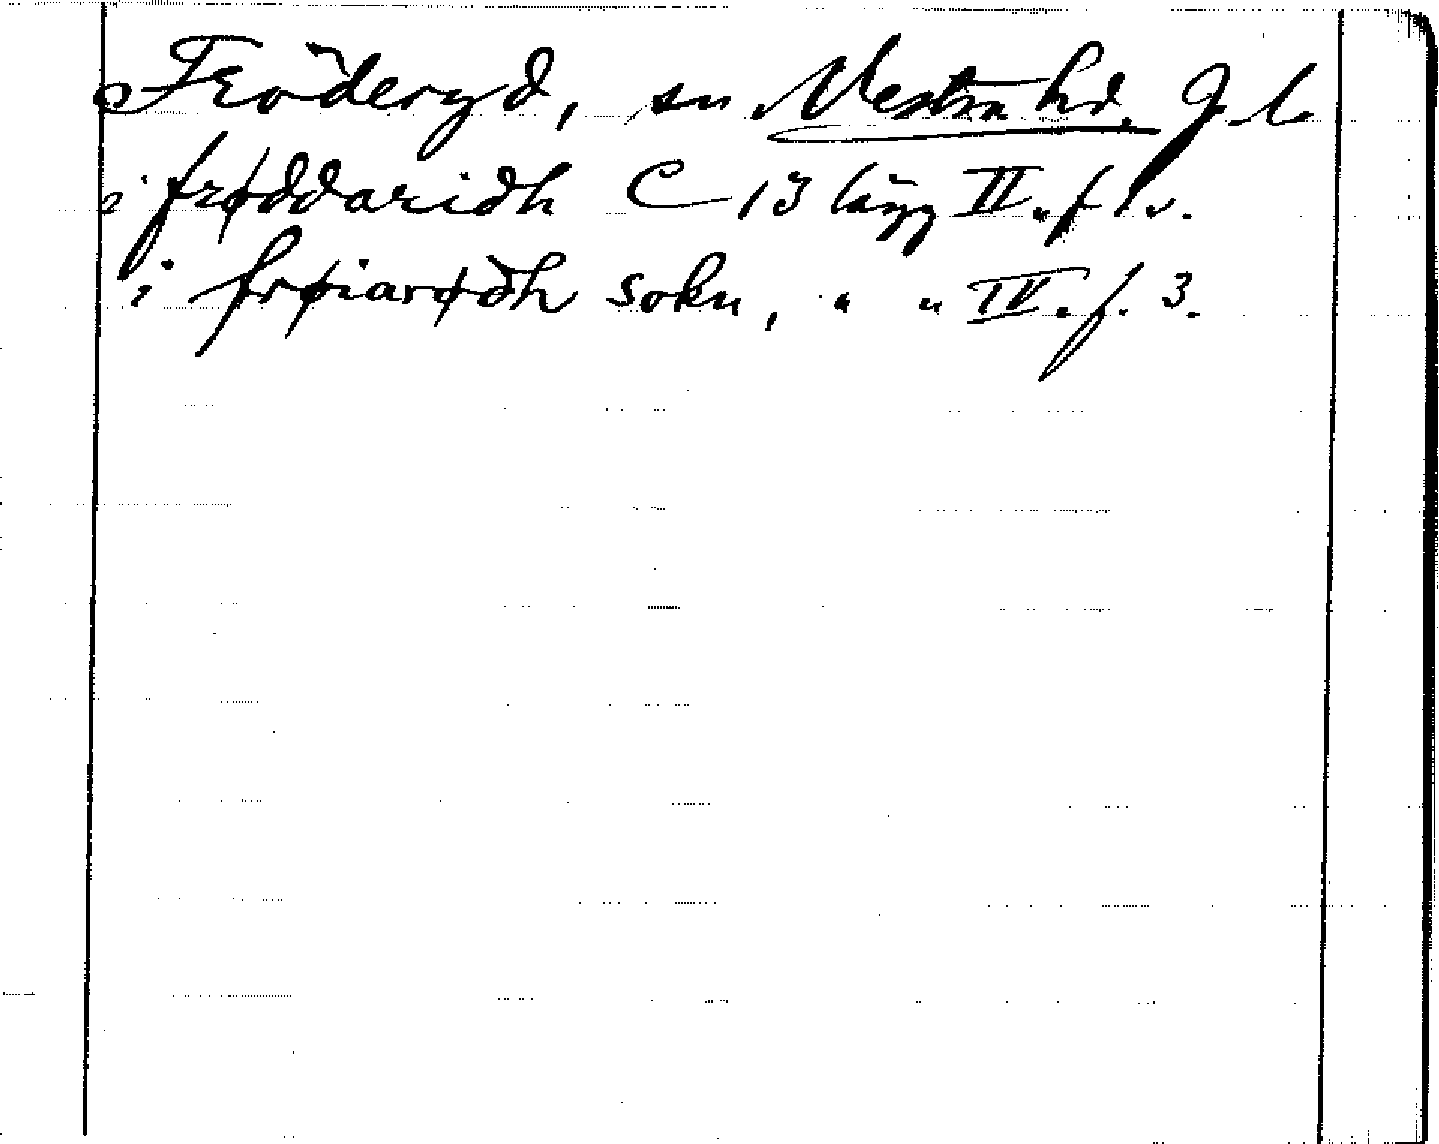 Fröderyd, sn Vestra hd. J. l.
i frøddaridh C 13 lägg II. f 1 v.
i frøiarødh sokn, " " IV. f. 3.